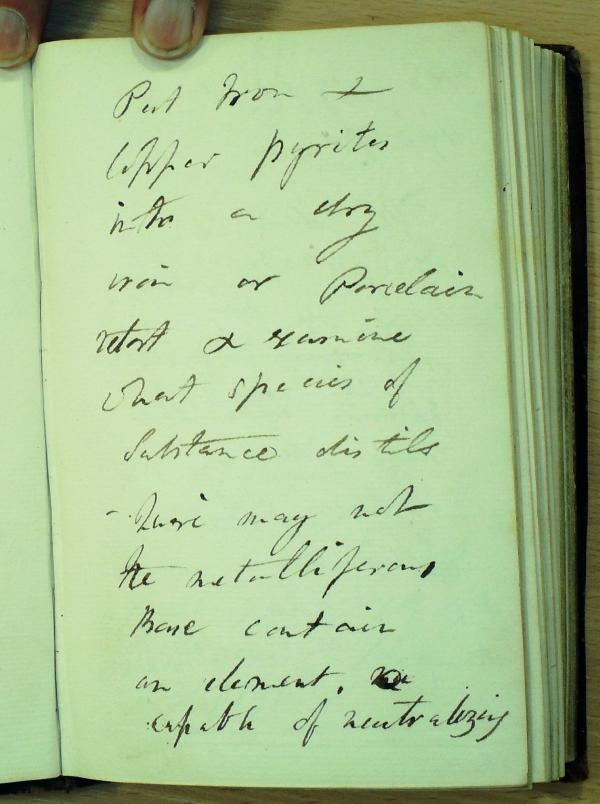 Put Iron &
Copper pyrites
into a dry
iron or Porcelain
retort & examine
what species of
Substance distils
- Quere may not
the metalliferous
Base contain
an element,
capable of neutralizing